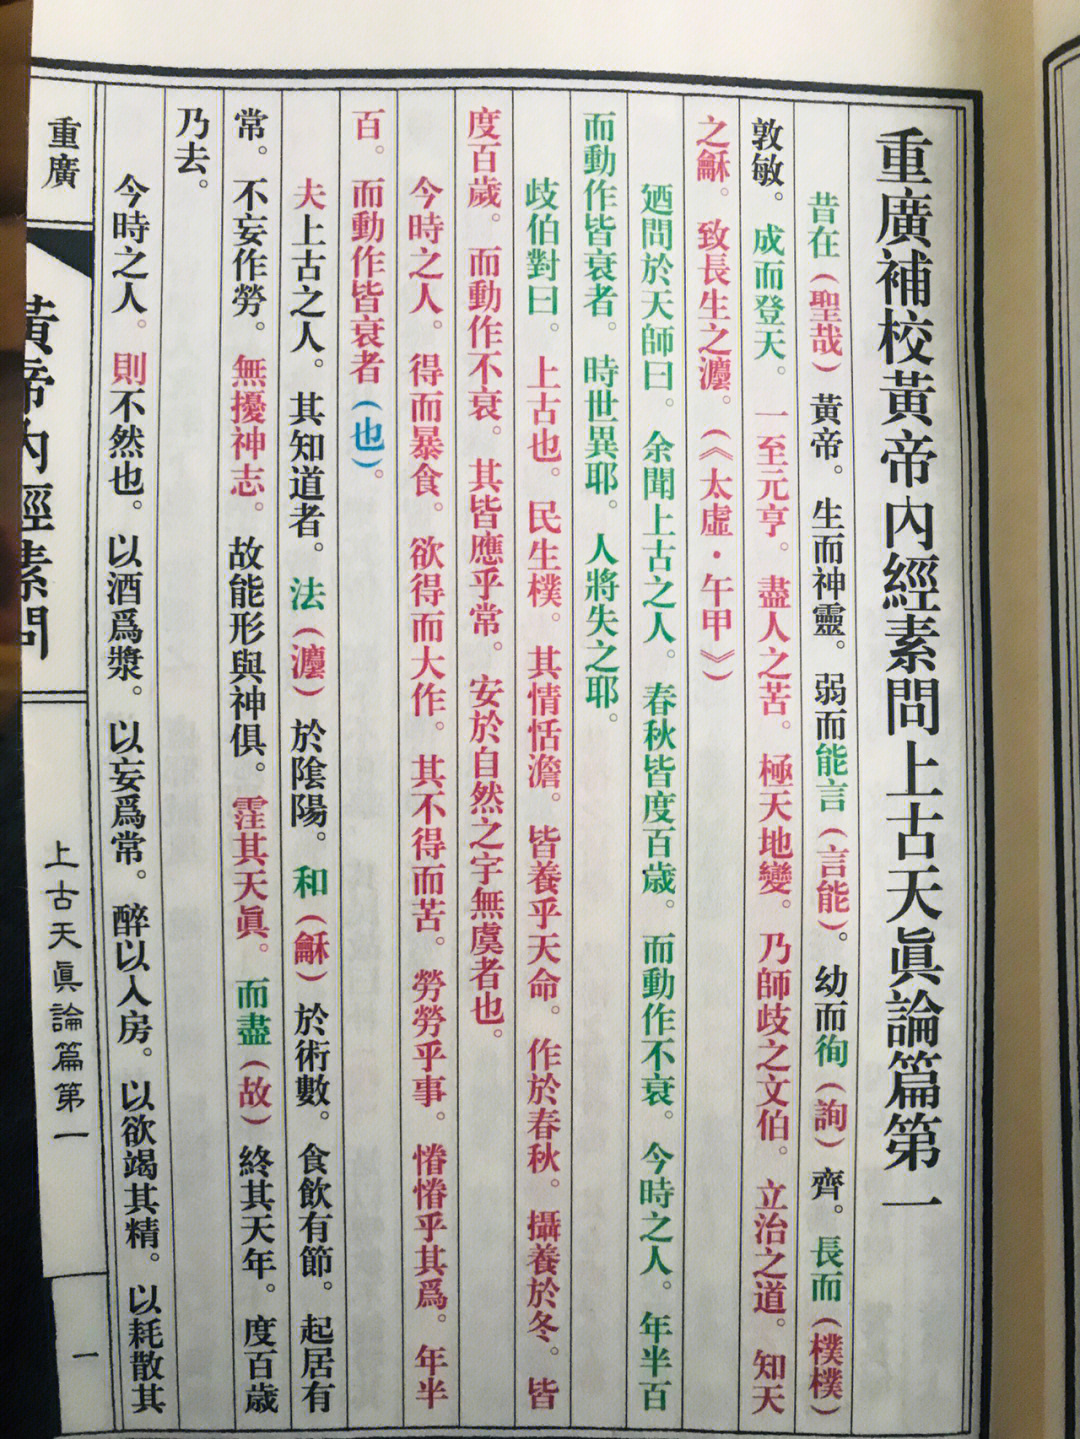 重廣補校黃帝內經素問上古天眞論篇第一
昔在（聖哉）黃帝。生而神靈。弱而能言（言能）。幼而徇（詢）齊。長而（樸樸）
敦敏。成而登天。一至元亨。盡人之苦。極天地變。乃師歧之文伯。立治之道。知天
之龢。致長生之灋。（《太虛·午甲》）
廼問於天師曰。余聞上古之人。春秋皆度百歲。而動作不衰。今時之人。年半百
而動作皆衰者。時世異耶。人將失之耶。
歧伯對曰。上古也。民生樸。其情恬澹。皆養乎天命。作於春秋。攝養於冬。皆
度百歲。而動作不衰。其皆應乎常。安於自然之宇無虞者也。
今時之人。得而暴食。欲得而大作。其不得而苦。勞勞乎事。惛惛乎其爲。年半
百。而動作皆衰者（也）。
夫上古之人。其知道者。法（灋）於陰陽。和（龢）於術數。食飲有節。起居有
常。不妄作勞。無擾神志。故能形與神俱。霔其天眞。而盡（故）終其天年。度百歲
乃去。
今時之人。則不然也。以酒爲漿。以妄爲常。醉以入房。以欲竭其精。以耗散其
重廣
黃帝內經素問
上古天眞論篇第一
一